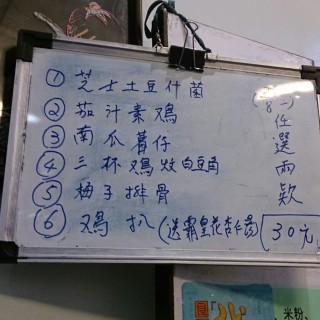 ① 芝士土豆什菌
② 茄汁素鸡
③ 南瓜薯仔
④ 三杯鸡炆白豆角
⑤ 柚子排骨
⑥ 鸡扒(送霸皇花杏仁汤)
任選兩款
30元
米粉、